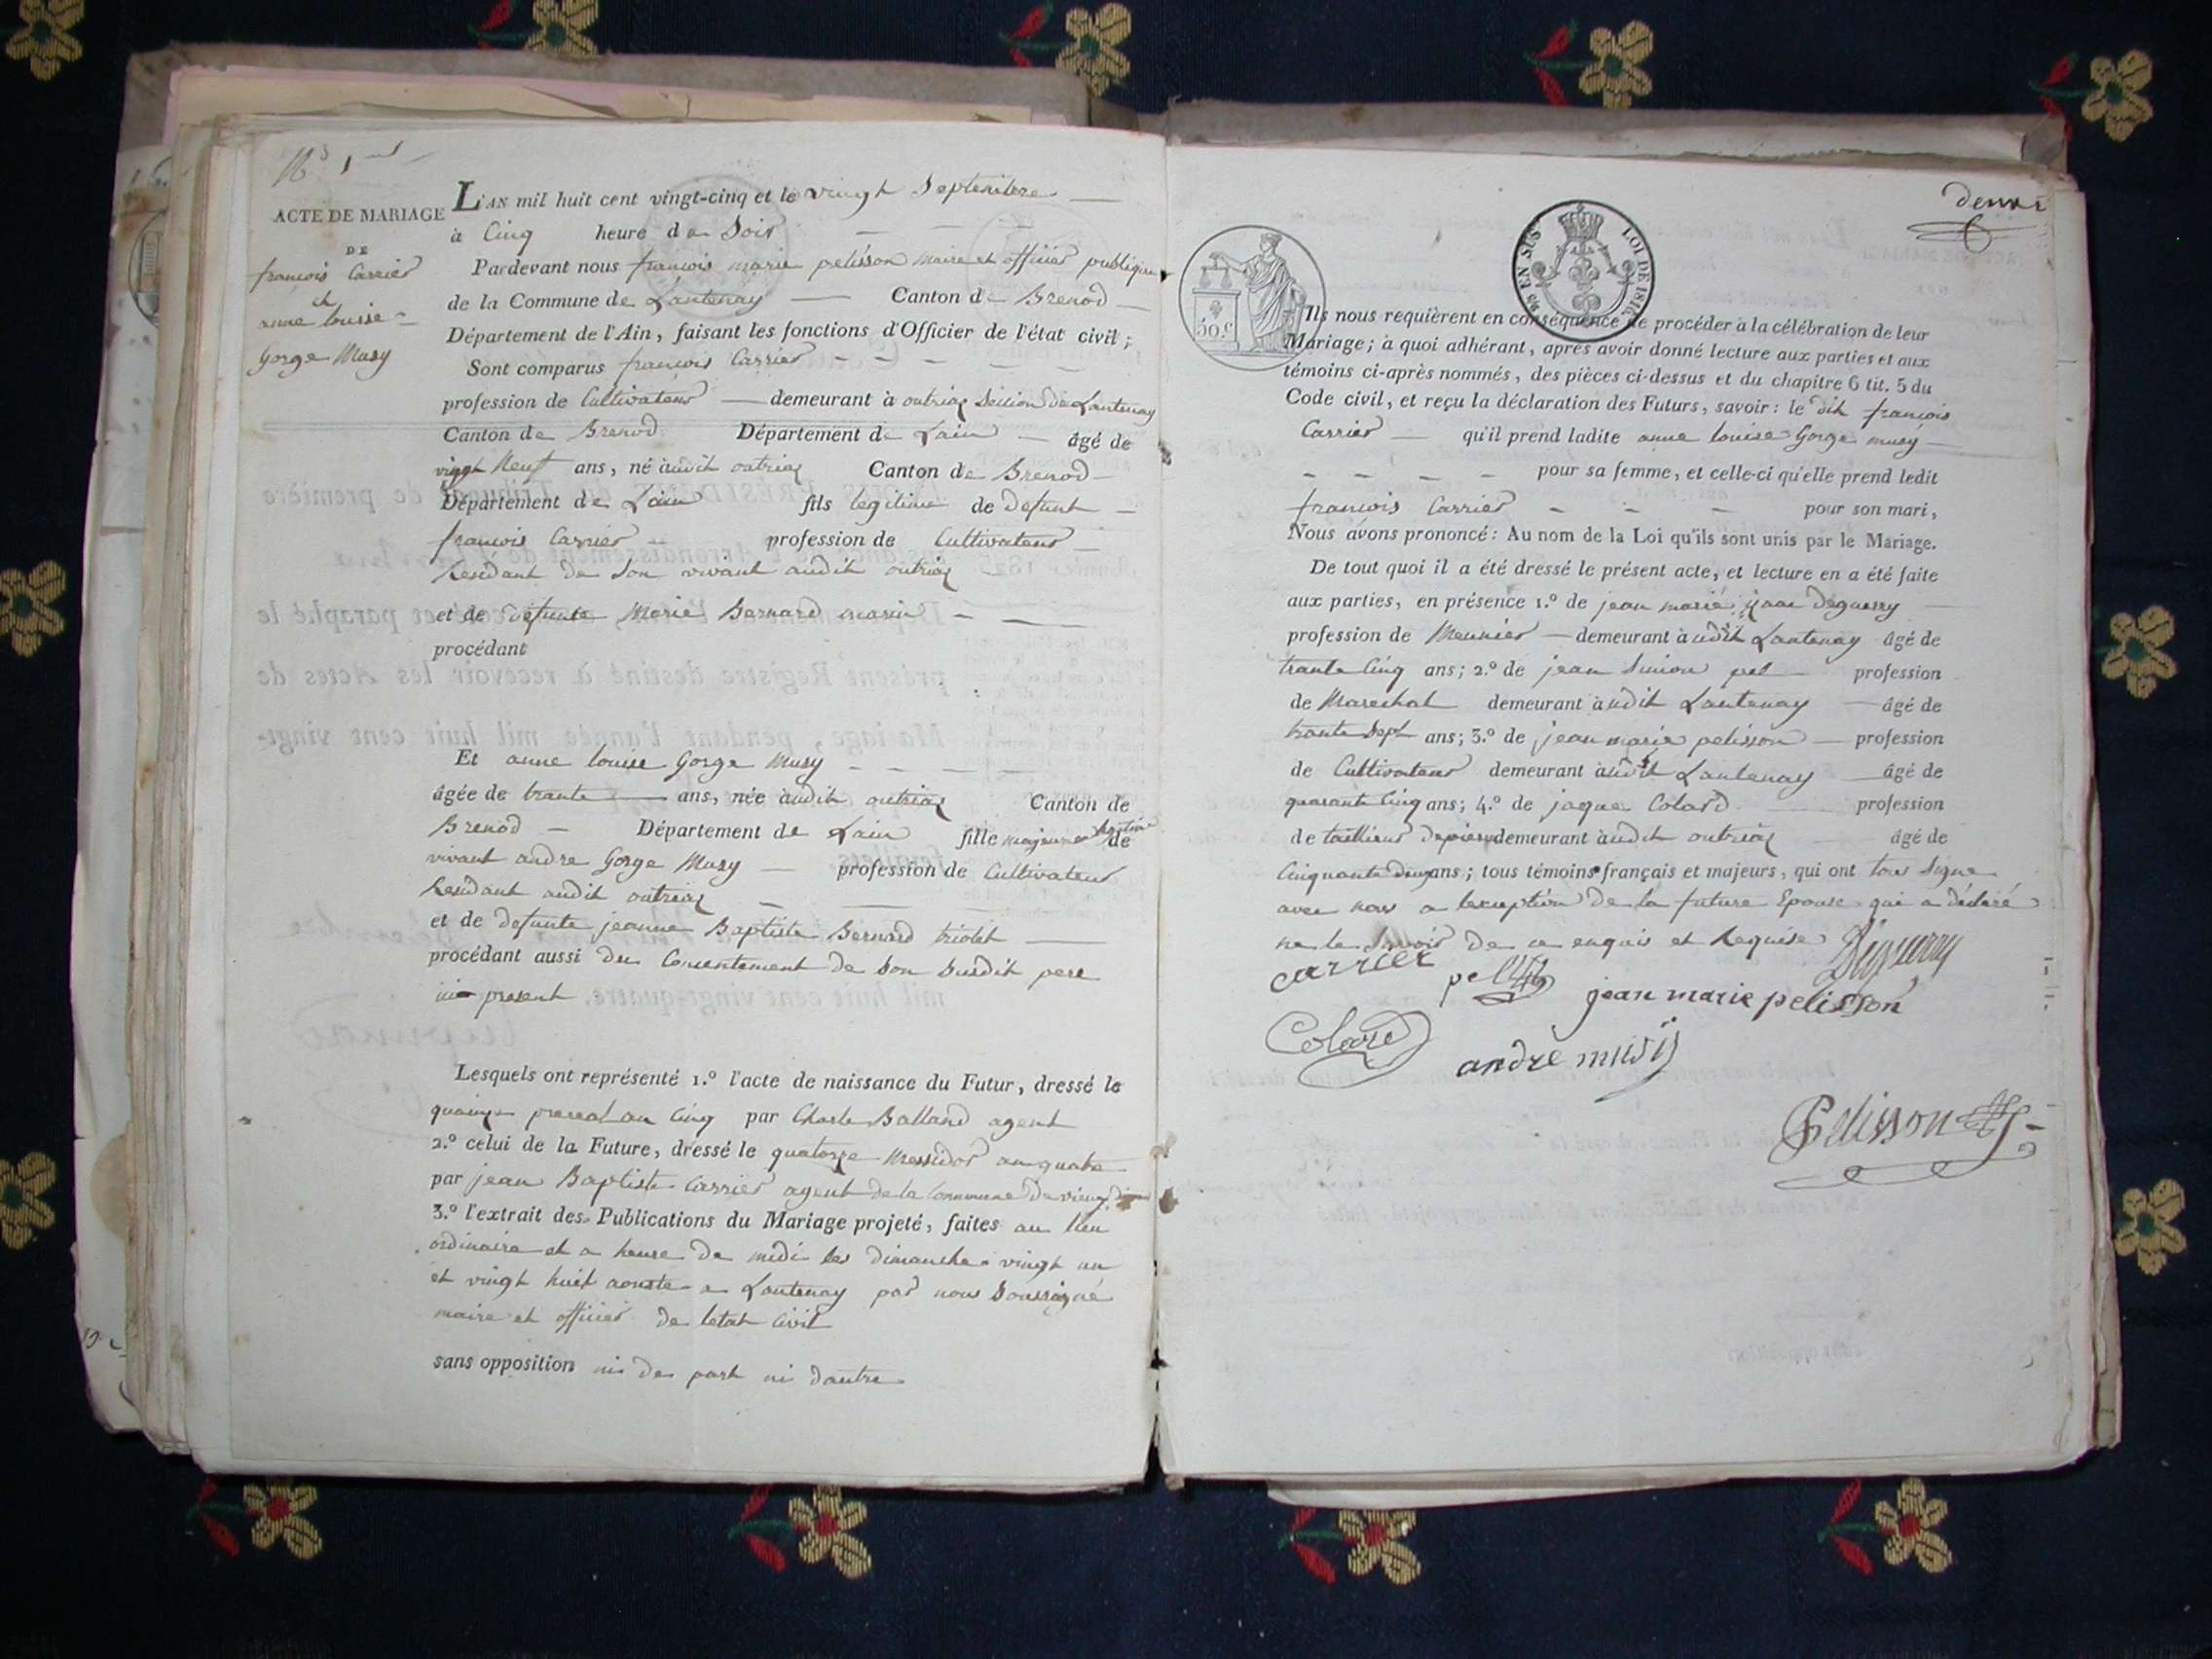 N° 1
ACTE DE MARIAGE
DE
françois Carrier
et
anne louise
Gorge Musy
L'AN mil huit cent vingt-cinq et le vingt Septembre
à Cinq heure de Soir
Pardevant nous françois marie pelisson maire et officier publique
de la Commune de Lantenay Canton de Brenod
Département de l'Ain, faisant les fonctions d'Officier de l'état civil;
Sont comparus françois Carrier
profession de Cultivateur demeurant à outriaz Section de Lantenay
Canton de Brenod Département de Lain âgé de
vingt Neuf ans, né audit outriaz Canton de Brenod
Département de Lain fils legitime de Defunt
françois Carrier profession de Cultivateur
Residant de Son vivant audit outriaz
et de Defunte Marie Bernard marin
procédant
Et anne louise Gorge Musy
âgée de trante ans, née audit outriaz Canton de
Brenod Département de Lain fille majeure legitime de
vivant andre Gorge Musy profession de Cultivateur
Residant audit outriaz
et de defunte jeanne Baptiste Bernard triolet
procédant aussi du Consentement de Son Susdit pere
ici present
Lesquels ont représenté 1.° l'acte de naissance du Futur, dressé le
quainze prereal an Cinq par Charle Balland agent
2.° celui de la Future, dressé le quatorze Messidor an quatre
par jean Baptiste Carrier agent de la Commune de vieux
3.° l'extrait des Publications du Mariage projeté, faites au lieu
ordinaire et a heure de midi les dimanche vingt un
et vingt huit aouste a Lantenay par nous Soussigné
maire et officier de letat Civil
sans opposition ni de part ni dautre
50.c
EN SUS LOI DE 1816.
Ils nous requièrent en conséquence de procéder à la célébration de leur
Mariage; à quoi adhérant, après avoir donné lecture aux parties et aux
témoins ci-après nommés, des pièces ci-dessus et du chapitre 6 tit. 5 du
Code civil, et reçu la déclaration des Futurs, savoir: le dit françois
Carrier qu'il prend ladite anne louise Gorge musy
pour sa femme, et celle-ci qu'elle prend ledit
françois Carrier pour son mari,
Nous avons prononcé: Au nom de la Loi qu'ils sont unis par le Mariage.
De tout quoi il a été dressé le présent acte, et lecture en a été faite
aux parties, en présence 1.° de jean marie deguerry
profession de Meunier demeurant audit Lantenay âgé de
trante Cinq ans; 2.° de jean Simion pel profession
de Marechal demeurant audit Lantenay âgé de
trante Sept ans; 3.° de jean marie pelisson profession
de Cultivateur demeurant audit Lantenay âgé de
quarante Cinq ans; 4.° de jaque Colard profession
de taillieur depierre demeurant audit outriaz âgé de
Cinquante deux ans; tous témoins français et majeurs, qui ont tous Signe
avec nous a lexception de la future Epouse qui a déclaré
ne le Savoir de ce enquis et Requise Deguerry
carrier
jean marie pelisson
Colard
andre musy
Pelisson